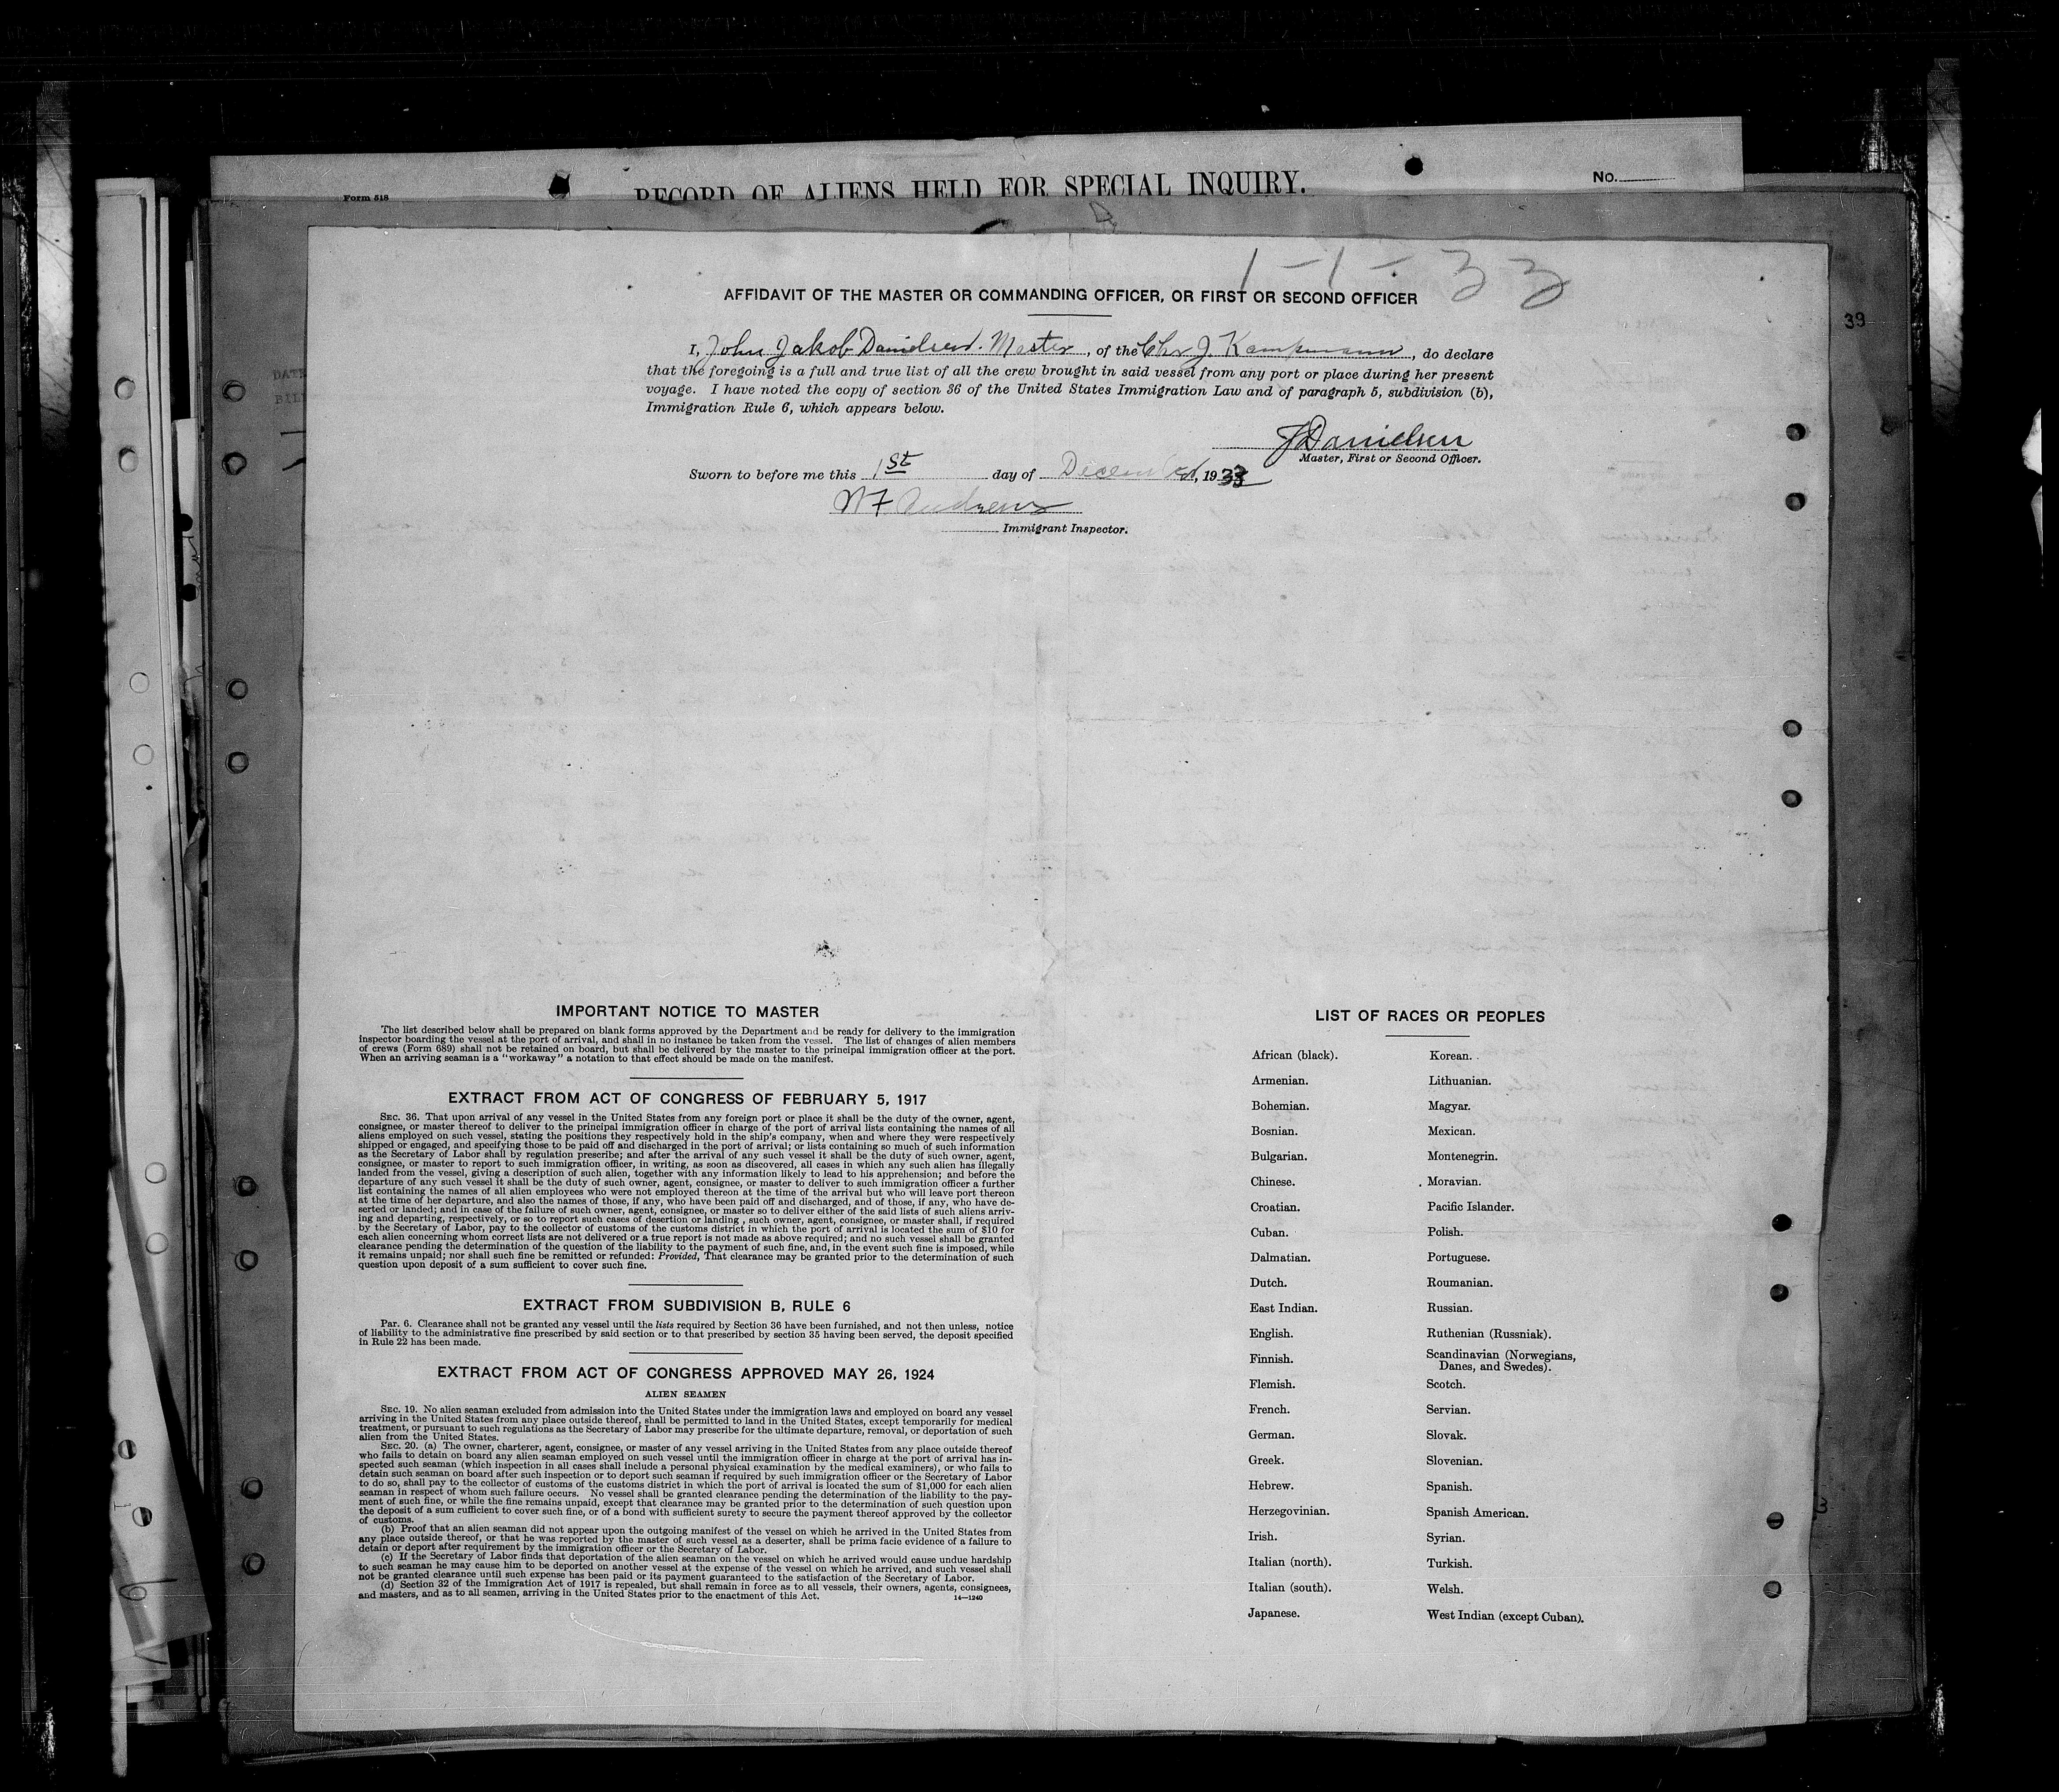 Form 518
RECORD OF ALIENS HELD FOR SPECIAL INQUIRY.
No.
1-1-33
39
AFFIDAVIT OF THE MASTER OR COMMANDING OFFICER, OR FIRST OR SECOND OFFICER
I, John Jakob Danielsen. Master, of the Chr J. Kampmann, do declare
that the foregoing is a full and true list of all the crew brought in said vessel from any port or place during her present
voyage. I have noted the copy of section 36 of the United States Immigration Law and of paragraph 5, subdivision (b),
Immigration Rule 6, which appears below.
JDanielsen
Master, First or Second Officer.
Sworn to before me this 1st day of December, 1933
Andrews
Immigrant Inspector.
IMPORTANT NOTICE TO MASTER
The list described below shall be prepared on blank forms approved by the Department and be ready for delivery to the immigration
inspector boarding the vessel at the port of arrival, and shall in no instance be taken from the vessel. The list of changes of alien members
of crews (Form 689) shall not be retained on board, but shall be delivered by the master to the principal immigration officer at the port.
When an arriving seaman is a "workaway" a notation to that effect should be made on the manifest.
EXTRACT FROM ACT OF CONGRESS OF FEBRUARY 5, 1917
SEC. 36. That upon arrival of any vessel in the United States from any foreign port or place it shall be the duty of the owner, agent,
consignee, or master thereof to deliver to the principal immigration officer in charge of the port of arrival lists containing the names of all
aliens employed on such vessel, stating the positions they respectively hold in the ship's company, when and where they were respectively
shipped or engaged, and specifying those to be paid off and discharged in the port of arrival; or lists containing so much of such information
as the Secretary of Labor shall by regulation prescribe; and after the arrival of any such vessel it shall be the duty of such owner, agent,
consignee, or master to report to such immigration officer, in writing, as soon as discovered, all cases in which any such alien has illegally
landed from the vessel, giving a description of such alien, together with any information likely to lead to his apprehension; and before the
departure of any such vessel it shall be the duty of such owner, agent, consignee, or master to deliver to such immigration officer a further
list containing the names of all alien employees who were not employed thereon at the time of the arrival but who will leave port thereon
at the time of her departure, and also the names of those, if any, who have been paid off and discharged, and of those, if any, who have de-
serted or landed; and in case of the failure of such owner, agent, consignee, or master so to deliver either of the said lists of such aliens arriv-
ing and departing, respectively, or so to report such cases of desertion or landing , such owner, agent, consignee, or master shall, if required
by the Secretary of Labor, pay to the collector of customs of the customs district in which the port of arrival is located the sum of $10 for
each alien concerning whom correct lists are not delivered or a true report is not made as above required; and no such vessel shall be granted
clearance pending the determination of the question of the liability to the payment of such fine, and, in the event such fine is imposed, while
it remains unpaid; nor shall such fine be remitted or refunded: Provided, That clearance may be granted prior to the determination of such
question upon deposit of a sum sufficient to cover such fine.
EXTRACT FROM SUBDIVISION B, RULE 6
Par. 6. Clearance shall not be granted any vessel until the lists required by Section 36 have been furnished, and not then unless, notice
of liability to the administrative fine prescribed by said section or to that prescribed by section 35 having been served, the deposit specified
in Rule 22 has been made.
EXTRACT FROM ACT OF CONGRESS APPROVED MAY 26, 1924
ALIEN SEAMEN
SEC. 19. No alien seaman excluded from admission into the United States under the immigration laws and employed on board any vessel
arriving in the United States from any place outside thereof, shall be permitted to land in the United States, except temporarily for medical
treatment, or pursuant to such regulations as the Secretary of Labor may prescribe for the ultimate departure, removal, or deportation of such
alien from the United States.
SEC. 20. (a) The owner, charterer, agent, consignee, or master of any vessel arriving in the United States from any place outside thereof
who fails to detain on board any alien seaman employed on such vessel until the immigration officer in charge at the port of arrival has in-
spected such seaman (which inspection in all cases shall include a personal physical examination by the medical examiners), or who fails to
detain such seaman on board after such inspection or to deport such seaman if required by such immigration officer or the Secretary of Labor
to do so, shall pay to the collector of customs of the customs district in which the port of arrival is located the sum of $1,000 for each alien
seaman in respect of whom such failure occurs. No vessel shall be granted clearance pending the determination of the liability to the pay-
ment of such fine, or while the fine remains unpaid, except that clearance may be granted prior to the determination of such question upon
the deposit of a sum sufficient to cover such fine, or of a bond with sufficient surety to secure the payment thereof approved by the collector
of customs.
(b) Proof that an alien seaman did not appear upon the outgoing manifest of the vessel on which he arrived in the United States from
any place outside thereof, or that he was reported by the master of such vessel as a deserter, shall be prima facie evidence of a failure to
detain or deport after requirement by the immigration officer or the Secretary of Labor.
(c) If the Secretary of Labor finds that deportation of the alien seaman on the vessel on which he arrived would cause undue hardship
to such seaman he may cause him to be deported on another vessel at the expense of the vessel on which he arrived, and such vessel shall
not be granted clearance until such expense has been paid or its payment guaranteed to the satisfaction of the Secretary of Labor.
(d) Section 32 of the Immigration Act of 1917 is repealed, but shall remain in force as to all vessels, their owners, agents, consignees,
and masters, and as to all seamen, arriving in the United States prior to the enactment of this Act.
14—1240
LIST OF RACES OR PEOPLES
African (black).
Armenian.
Bohemian.
Bosnian.
Bulgarian.
Chinese.
Croatian.
Cuban.
Dalmatian.
Dutch.
East Indian.
English.
Finnish.
Flemish.
French.
German.
Greek.
Hebrew.
Herzegovinian.
Irish.
Italian (north).
Italian (south).
Japanese.
Korean.
Lithuanian.
Magyar.
Mexican.
Montenegrin.
Moravian.
Pacific Islander.
Polish.
Portuguese.
Roumanian.
Russian.
Ruthenian (Russniak).
Scandinavian (Norwegians,
Danes, and Swedes).
Scotch.
Servian.
Slovak.
Slovenian.
Spanish.
Spanish American.
Syrian.
Turkish.
Welsh.
West Indian (except Cuban).